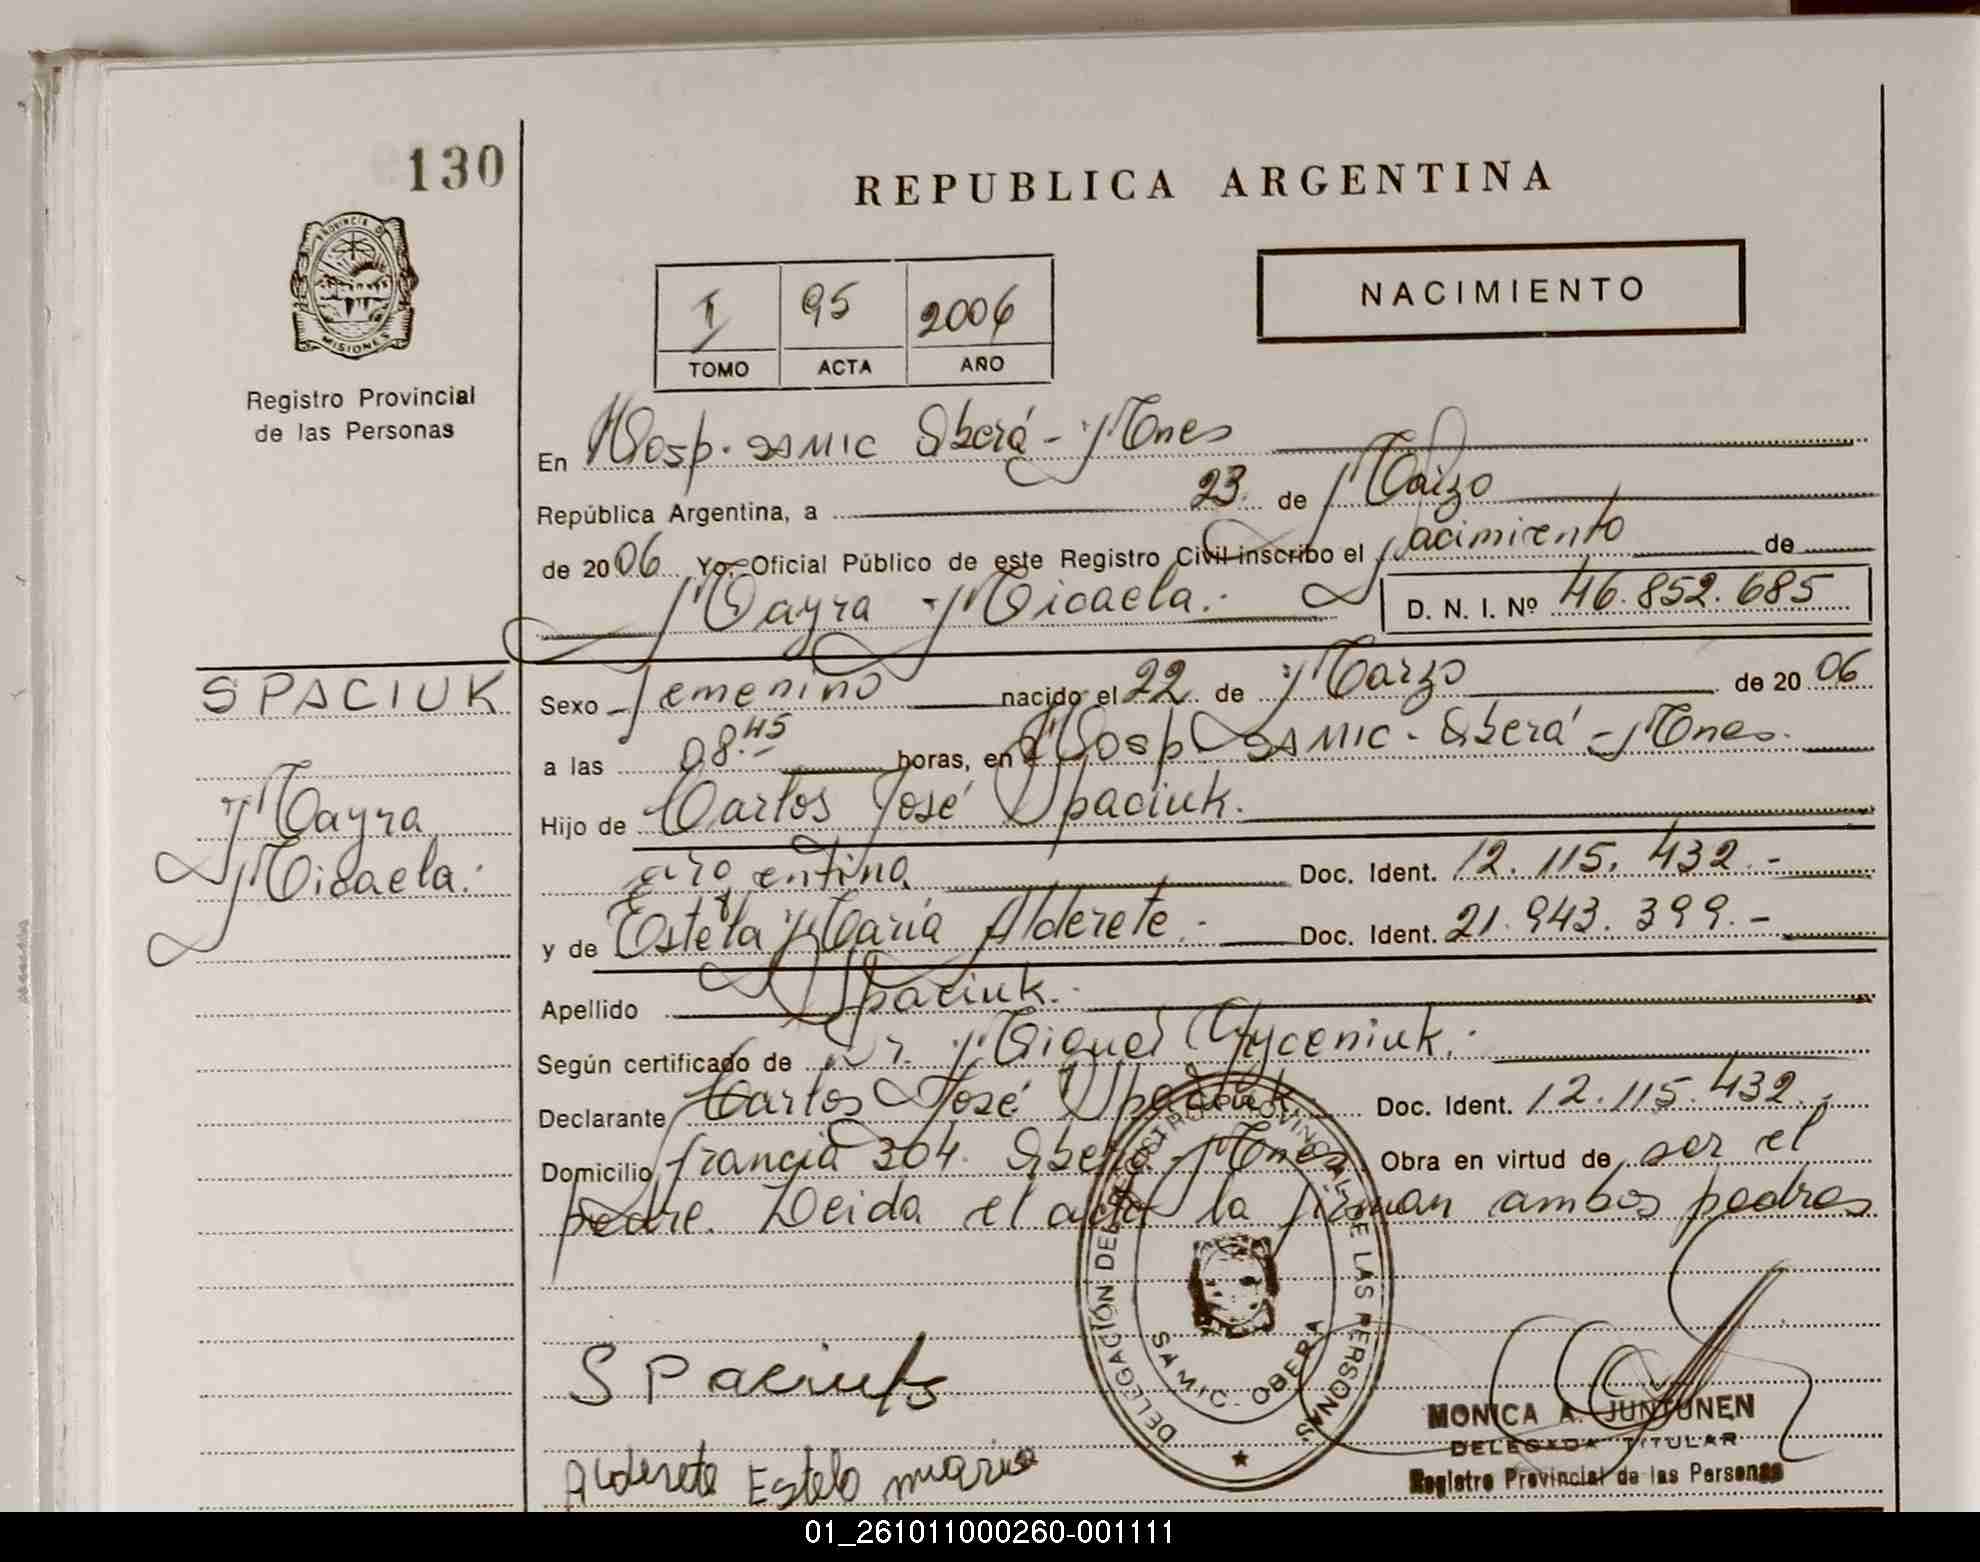 130
REPUBLICA ARGENTINA
PROVINCIA D
MISIONES
Registro Provincial
de las Personas
I 95 2006
TOMO ACTA AÑO
NACIMIENTO
En Hosp. SAMIC Oberá - Mnes
República Argentina, a 23 de Marzo
de 2006 Yo, Oficial Público de este Registro Civil inscribo el Nacimiento de
Mayra Micaela. D. N. I. Nº 46.852.685
SPACIUK
Mayra
Micaela.
Sexo Femenino nacido el 22 de Marzo de 2006
a las 08.45 horas, en el Hosp. SAMIC - Oberá - Mnes.
Hijo de Carlos José Spaciuk.
argentina Doc. Ident. 12.115.432.-
y de Estela María Alderete.- Doc. Ident. 21.943.399.-
Apellido Spaciuk.
Según certificado de Dr. Miguel Hyceniuk.
Declarante Carlos José Spaciuk Doc. Ident. 12.115.432.-
Domicilio francia 304. Oberá - Mnes. Obra en virtud de ser el
padre. Leida el acta la firman ambos padres
DELEGACIÓN DEL REGISTRO PROVINCIAL DE LAS PERSONAS
SAMIC. OBERA
SPaciuk
Alderete Estela maria
MONICA A. JUNTUNEN
DELEGADA TITULAR
Registro Provincial de las Personas
01_261011000260-001111